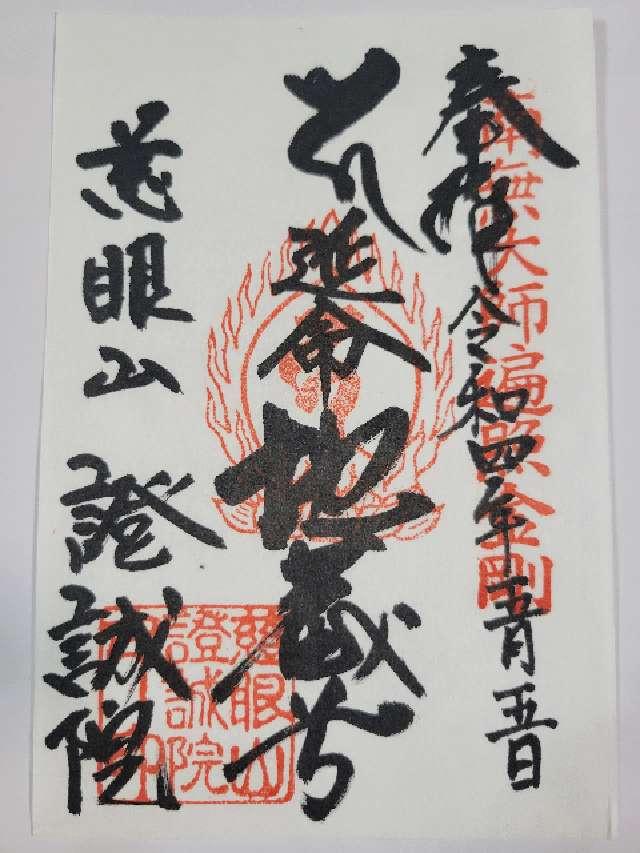 奉拝 令和四年五月五日
南無大師遍照金剛
延命地蔵尊
慈眼山 證誠院
慈眼山
證誠院